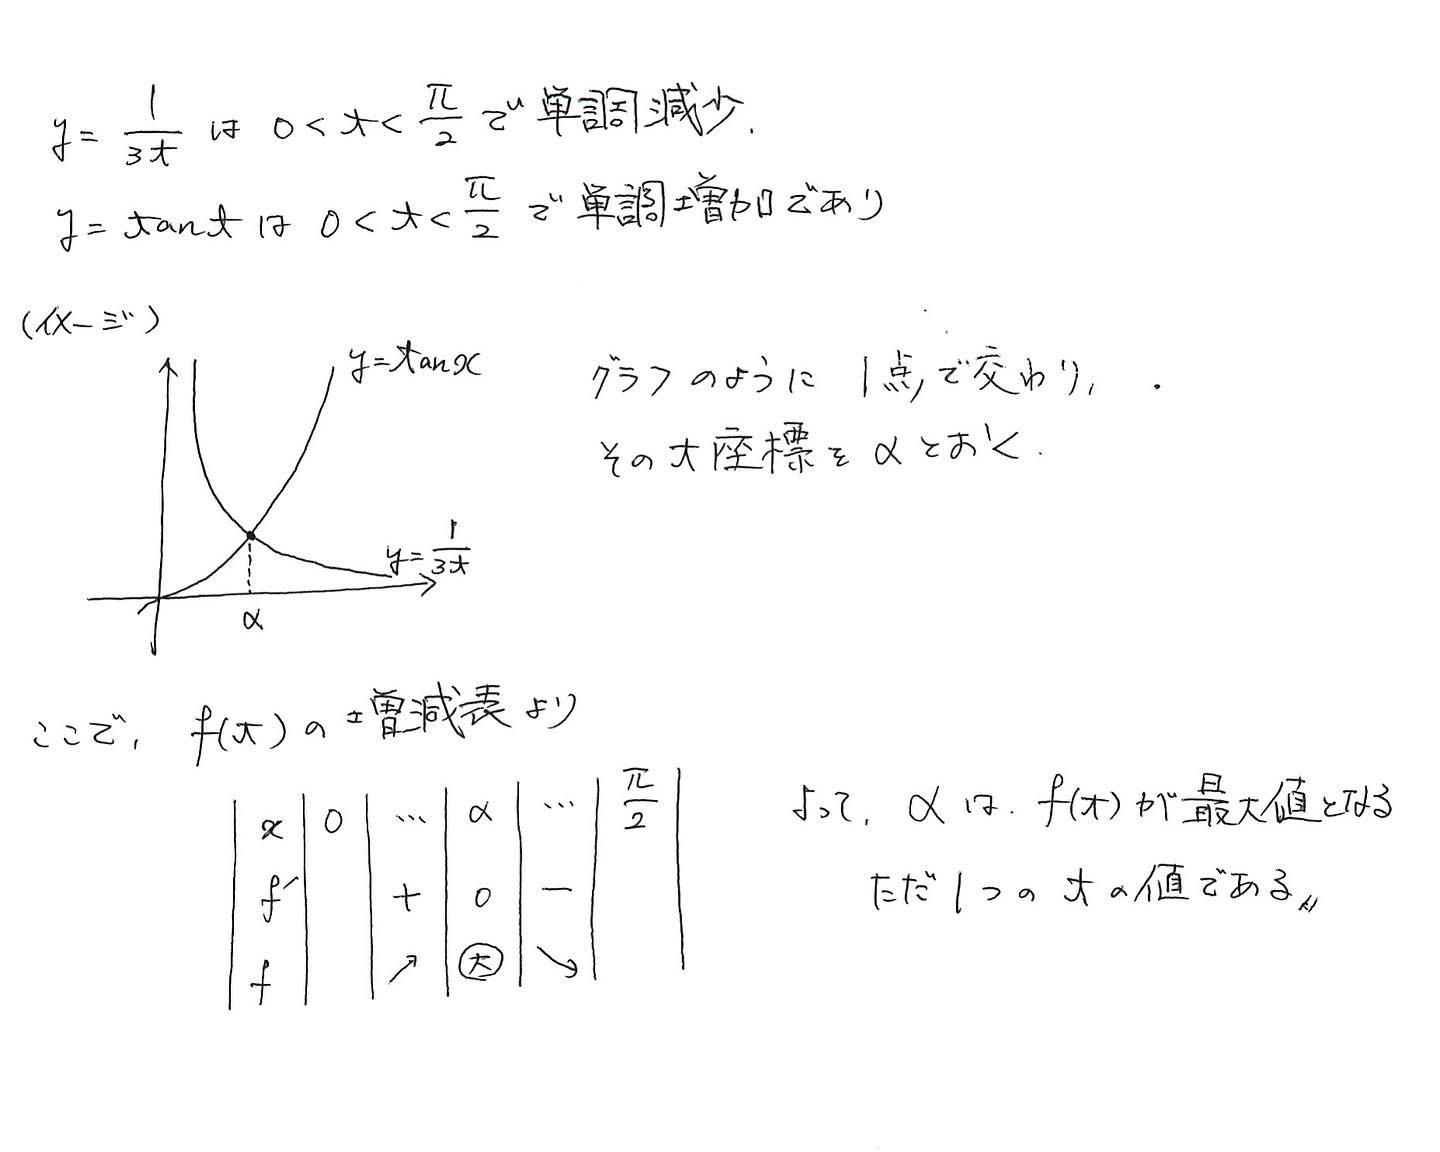 y = 1/3t は 0 < t < π/2 で 単調減少.
y = tant は 0 < t < π/2 で 単調増加であり
(イメージ)
y = tanx
グラフのように 1点で交わり,
その t 座標を α とおく.
y = 1/3t
α
ここで, f(t) の増減表より
x 0 … α … π/2
f′ + 0 −
f ↗ 大 ↘
よって, α は. f(t) が最大値となる
ただ1つの t の値である〃